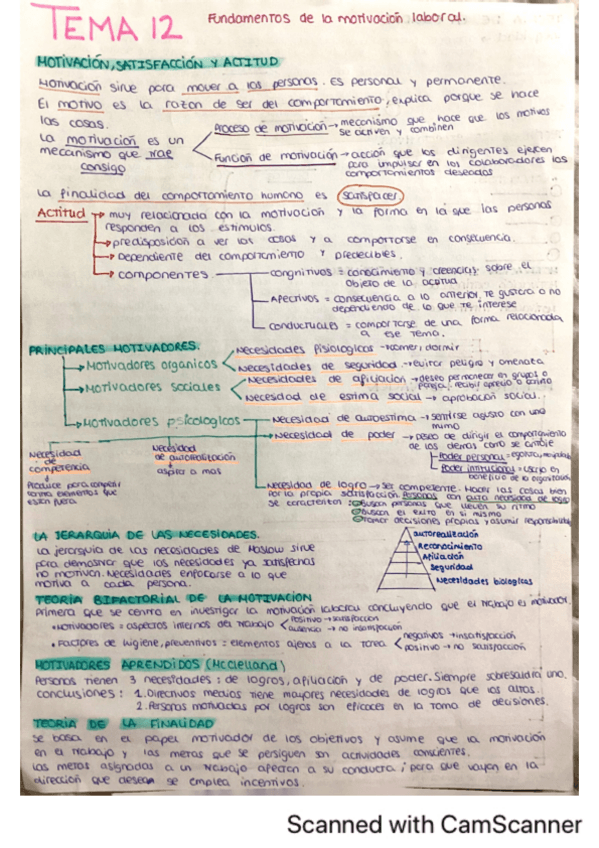 TEMA 12 Fundamentos de la motivación laboral.
MOTIVACIÓN, SATISFACCIÓN Y ACTITUD
Motivación sirve para mover a las personas. Es personal y permanente.
El motivo es la razón de ser del comportamiento, explica porque se hace
las cosas.
La motivación es un
mecanismo que trae
consigo
Proceso de motivación → mecanismo que hace que los motivos
se activen y combinen
Función de motivación → acción que los dirigentes ejercen
para impulsar en los colaboradores los
comportamientos deseados
La finalidad del comportamiento humano es satisfacer
Actitud → muy relacionada con la motivación y la forma en la que las personas
responden a los estímulos.
→ predisposición a ver las cosas y a comportarse en consecuencia.
→ Dependiente del comportamiento y predecibles.
→ componentes
congnitivos = conocimiento y creencias sobre el
objeto de la actitud
Afectivos = consecuencia a lo anterior, te gustara o no
dependiendo de lo que te interese
conductuales = comportarse de una forma relacionada
a ese tema.
PRINCIPALES MOTIVADORES.
→ Motivadores organicos
Necesidades fisiologicas → comer, dormir
Necesidades de seguridad → evitar peligro y amenaza
→ Motivadores sociales
Necesidades de afiliación → deseo permanecer en grupos o
pareja, recibir aprecio o cariño
Necesidad de estima social → aprobación social.
→ Motivadores psicologicos
Necesidad de autoestima → sentirse agusto con uno
mismo
Necesidad de poder → deseo de dirigir el comportamiento
de los demás
Poder personal =
Poder institucional = usarlo en
beneficio de la organización
Necesidad de competencia
↓
Producce para competir
contra elementos que
esten fuera.
Necesidad
de autorrealización
↓
aspira a mas
Necesidad de logro → ser competente. Hacer las cosas bien
por la propia satisfacción. Personas con alta necesidad de logro
se caracterizan: buscan personas que lleven su ritmo
buscan el exito en si mismo
tomar decisiones propias y asumir responsabilidad
LA JERARQUÍA DE LAS NECESIDADES.
La jerarquía de las necesidades de Maslow sirve
para demostrar que las necesidades ya satisfechas
no motivan. Necesidades enfocarse a lo que
motiva a cada persona.
autorrealización
Reconocimiento
Afiliación
Seguridad
Necesidades biologicas
TEORÍA BIFACTORIAL DE LA MOTIVACIÓN
Primera que se centra en investigar la motivación laboral concluyendo que el trabajo es motivador.
• Motivadores = aspectos internos del trabajo
Positivo → satisfacción
ausencia → no insatisfacción
• Factores de higiene, preventivos = elementos ajenos a la tarea
negativos → insatisfacción
positivo → no satisfacción
MOTIVADORES APRENDIDOS (McClelland)
Personas tienen 3 necesidades: de logros, afiliación y de poder. Siempre sobresaldría uno.
conclusiones: 1. Directivos medios tiene mayores necesidades de logros que los altos.
2. Personas motivadas por logros son eficaces en la toma de decisiones.
TEORÍA DE LA FINALIDAD
Se basa en el papel motivador de los objetivos y asume que la motivación
en el trabajo y las metas que se persiguen son actividades conscientes.
Las metas asignadas a un trabajo afectan a su conducta, para que vayan en la
dirección que desean se emplea incentivos.
Scanned with CamScanner